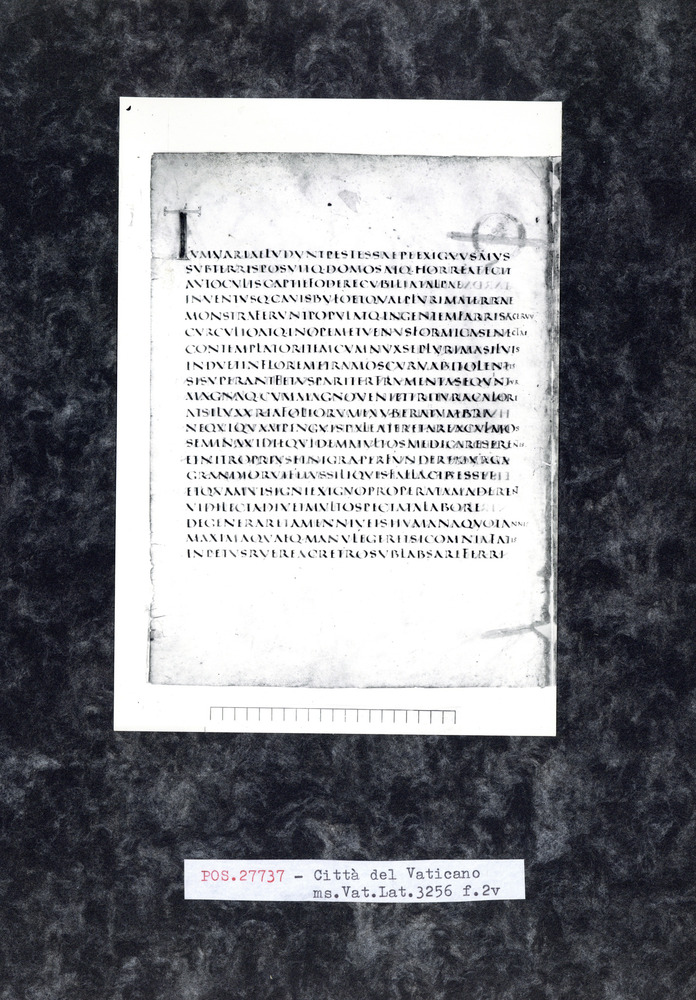 TVMVARIAEINLVDVNTPESTESSAEPEEXIGVVSMVS
SVBTERRISPOSVITQ.DOMOSATQ.HORREAFECIT
AVTOCVLISCAPTIFODERECVBILIATALPAE
INVENTVSQ.CAVISBVFOETQVAEPLVRIMATERRAE
MONSTRAFERVNTPOPVLATQ.INGENTEMFARRISACERVV
CVRCVLIOATQ.INOPEMETVENSFORMICASENECTAE
CONTEMPLATORITEMCVMNVXSEPLVRIMASILVIS
INDVETINFLOREMETRAMOSCVRVABITOLENTIS
SISVPERANTFETVSPARITERFRVMENTASEQVNTVR
MAGNAQ.CVMMAGNOVENIETTRITVRACALORE
ATSILVXVRIAFOLIORVMEXVBERATVMBRA
NEQVIQVAMPINGVISPALEATERETAREACVLMOS
SEMINAVIDIEQVIDEMMVLTOSMEDICARESERENTIS
ETNITROPRIVSETNIGRAPERFVNDEREAMVRGA
GRANDIORVTFETVSSILIQVISFALLACIBVSESSET
ETQVAMVISIGNIEXIGVOPROPERATAMADERENT
VIDILECTADIVETMVLTOSPECTATALABORE
DEGENERARETAMENNIVEISHVMANAQVOTANNIS
MAXIMAQVAEQ.MANVLEGERETSICOMNIAFATIS
INPEIVSRVEREACRETROSVBLABSAREFERRI
POS.27737 - Città del Vaticano
ms.Vat.Lat.3256 f.2v